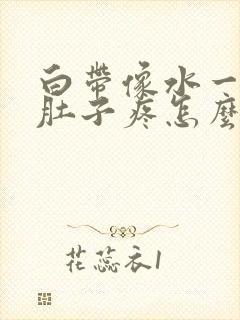 白帶像水一
肚子疼怎麼
花蕊衣1